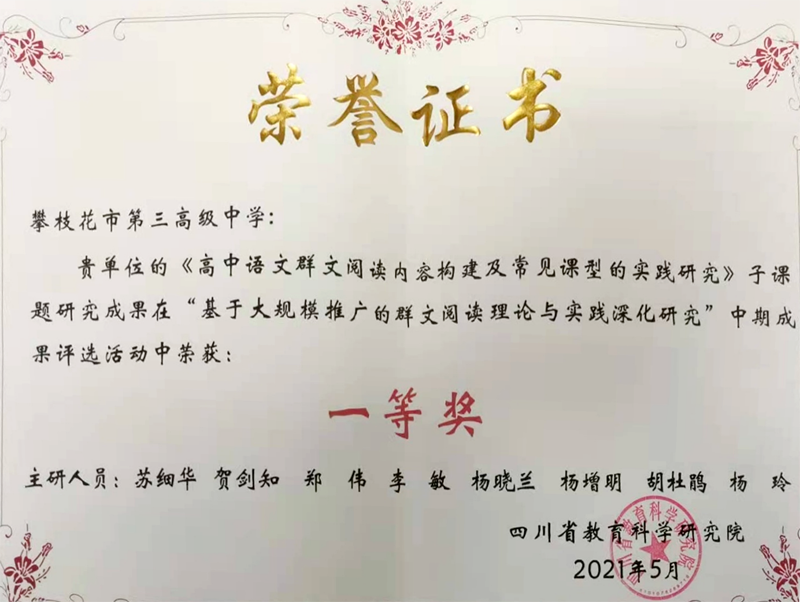 荣誉证书
攀枝花市第三高级中学：
贵单位的《高中语文群文阅读内容构建及常见课型的实践研究》子课
题研究成果在“基于大规模推广的群文阅读理论与实践深化研究”中期成
果评选活动中荣获：
一等奖
主研人员：苏细华 贺剑知 郑 伟 李 敏 杨晓兰 杨增明 胡杜鹃 杨 玲
四川省教育科学研究院
四川省教育科学研究院
2021年5月